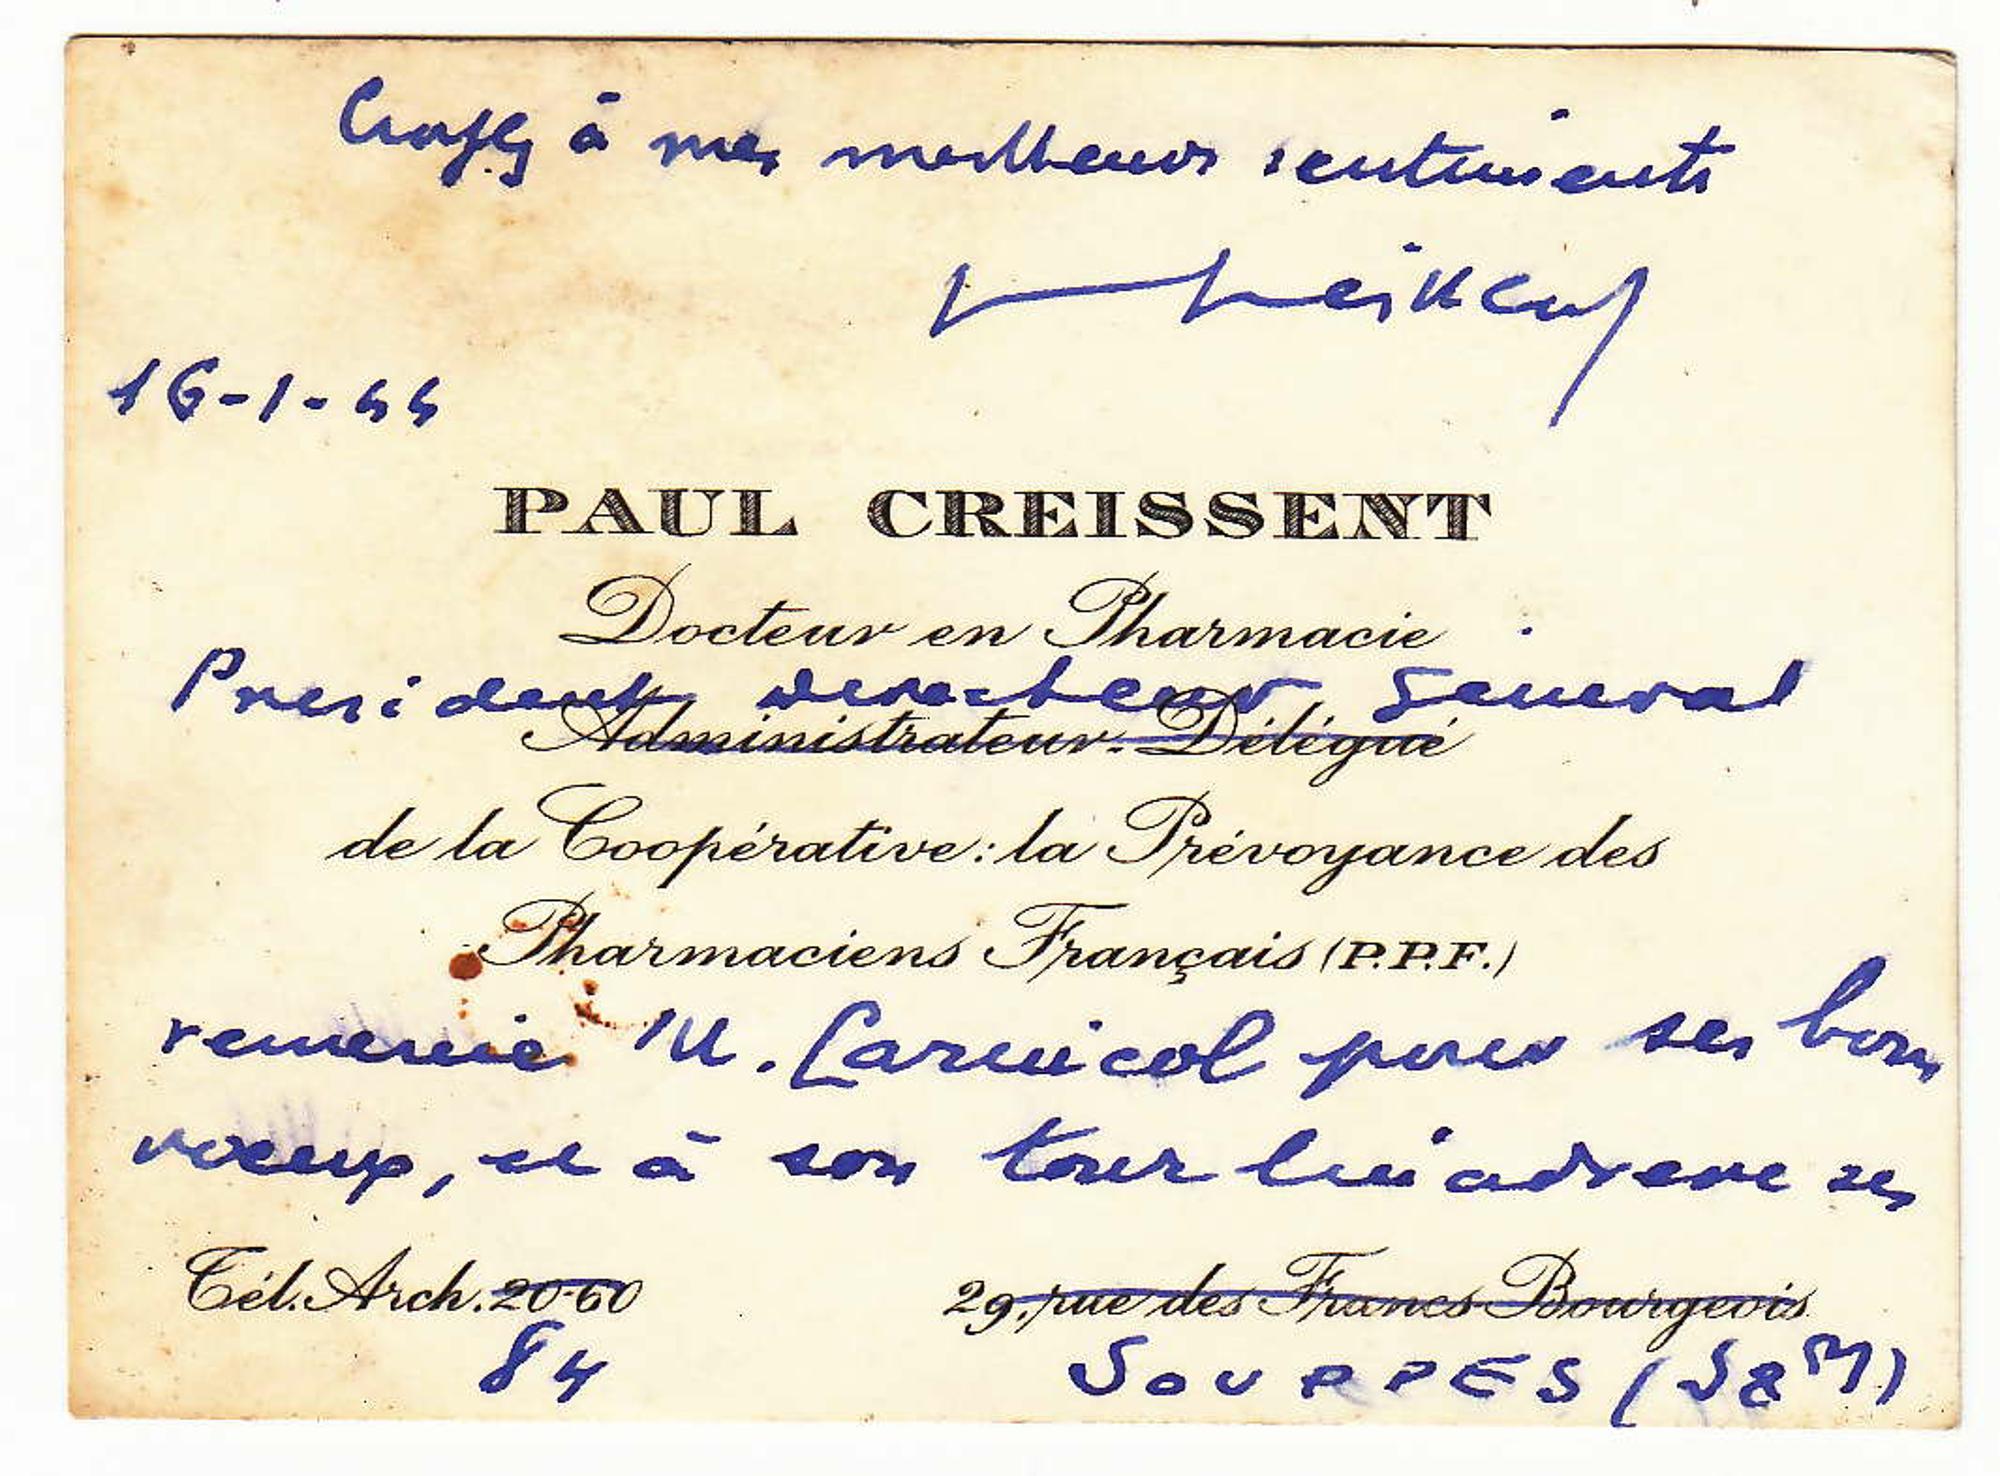 Croyez à mes meilleurs sentiments
16-1-44
PAUL CREISSENT
Docteur en Pharmacie
President directeur General
Administrateur-Délégué
de la Coopérative: la Prévoyance des
Pharmaciens Français (P.P.F.)
remercie M. Carnicol pour ses bons
voeux, et à son tour lui adresse ses
Tél. Arch. 20-60
29, rue des Francs-Bourgeois
84
SOUPPES (S&M)